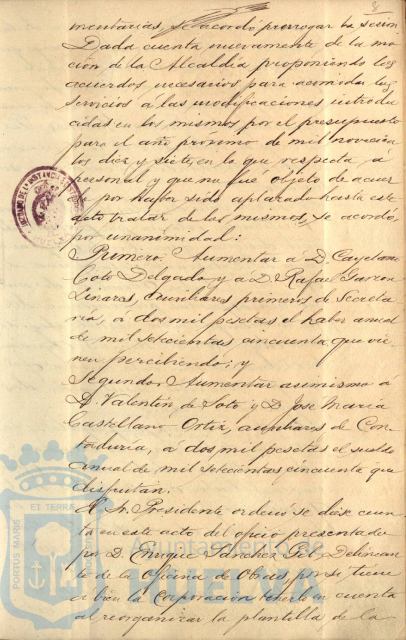 mentarias, se acordó prorrogar la sesión
Dada cuenta nuevamente de la mo
ción de la Alcaldía proponiendo los
acuerdos necesarios para acomodar los
servicios á las modificaciones introdu
cidas en los mismos por el presupuesto
para el año próximo de mil novecien
tos diez y siete, en lo que respecta á
personal y que no fué objeto de acuer
do por haber sido aplazado hasta este
acto tratar de los mismos, se acordó
por unanimidad:
Primero. Aumentar á D. Cayetano
Coto Delgado y á D. Rafael Garzon
Linares, auxiliares primeros de Secreta
ria, á dos mil pesetas el haber anual
de mil setecientas cincuenta que vie
nen percibiendo; y
Segundo. Aumentar asimismo á
D. Valentin de Soto y D. José Maria
Castellano Ortiz, auxiliares de Con
taduría, á dos mil pesetas el sueldo
anual de mil setecientas cincuenta que
disfrutan.
El Sr. Presidente ordenó se diese cuen
ta en este acto del oficio presentado
por D. Enrique Sanchez Delinean
te de la Oficina de Obras por si tiene
á bien la Corporación tenerlo en cuenta
al reorganizar la plantilla de la
PORTUS MARIS ET TERRAE
Ayuntamiento de